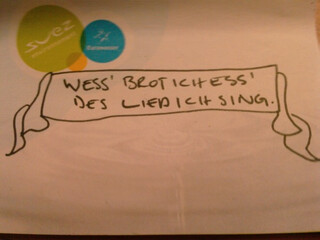 suez
WESS' BROT ICH ESS'
DES LIED ICH SING.